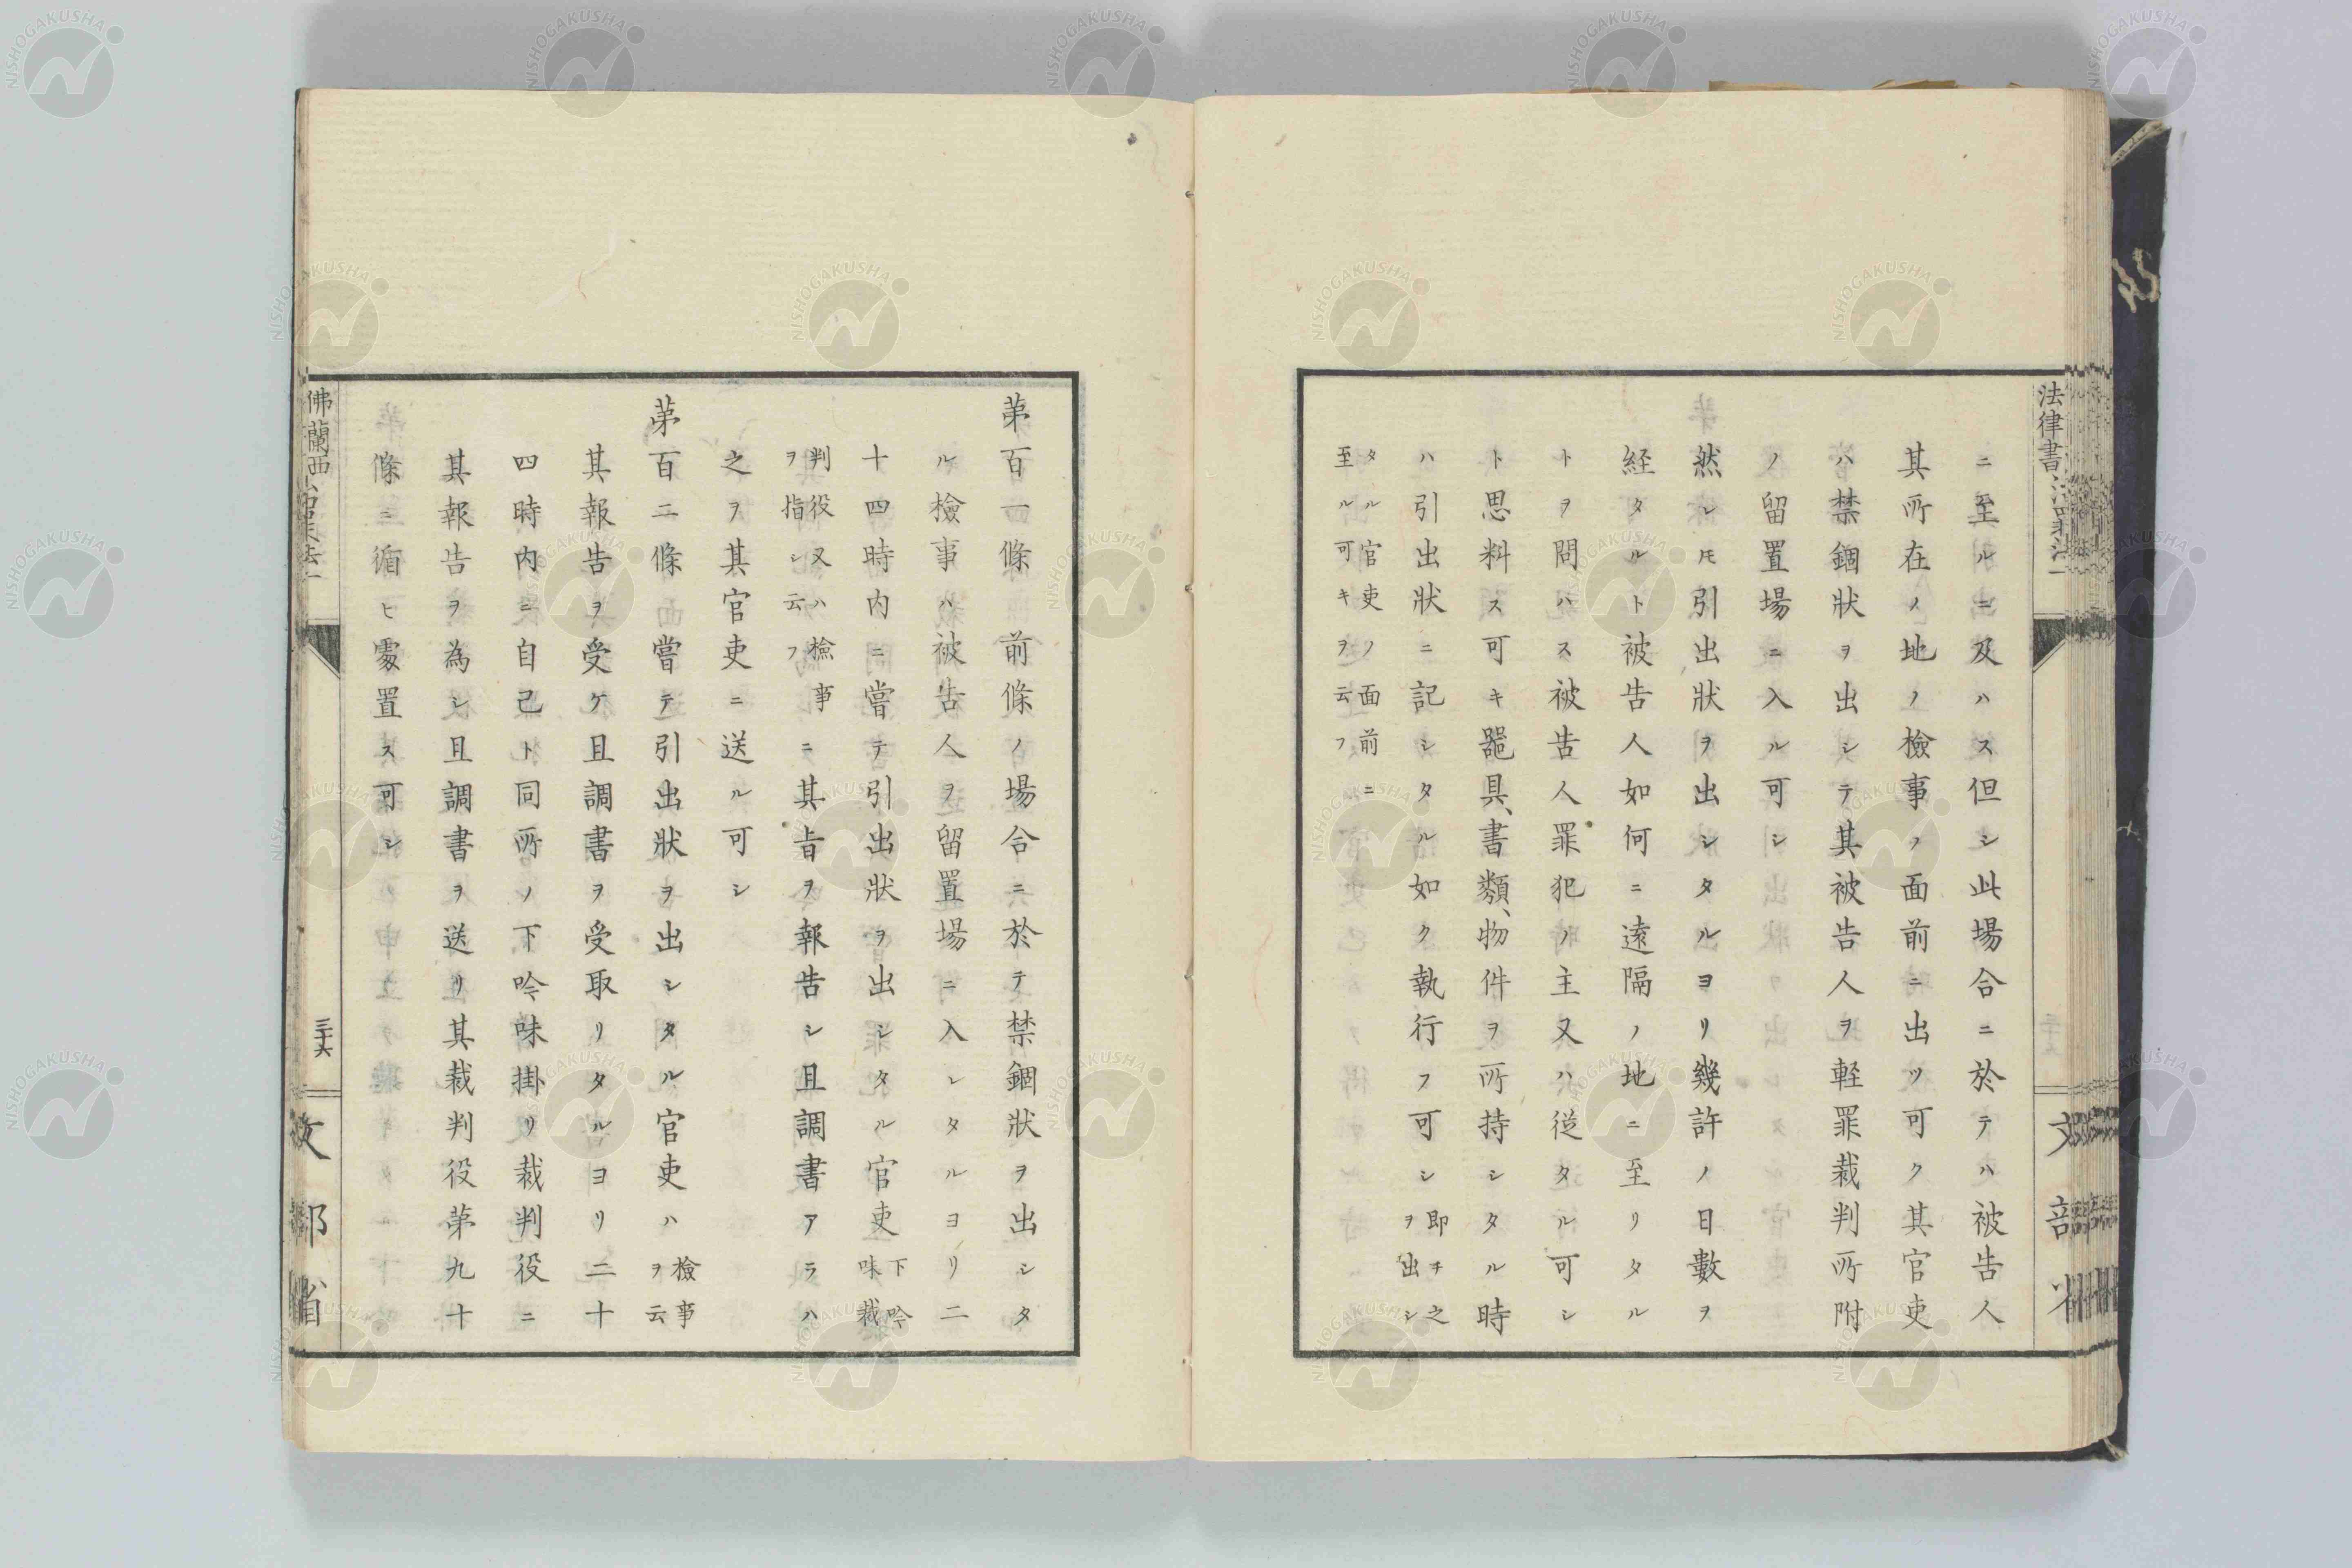 ニ至ルニ及ハス但シ此場合ニ於テハ被告人
其所在ノ地ノ檢事ノ面前ニ出ツ可ク其官吏
ハ禁錮狀ヲ出シテ其被告人ヲ軽罪裁判所附
ノ留置場ニ入ル可シ
然レ𪜈引出狀ヲ出シタルヨリ幾許ノ日數ヲ
経タルト被告人如何ニ遠隔ノ地ニ至リタル
トヲ問ハス被告人罪犯ノ主又ハ従タル可シ
ト思料スス可キ噐具、書類、物件ヲ所持シタル時
ハ引出狀ニ記シタル如ク執行フ可シ即チ之ヲ出シ
タル官吏ノ面前ニ至ル可キヲ云フ
法律書
文部省
第百一條 前條ノ場合ニ於テ禁錮狀ヲ出シタ
ル檢事ハ被告人ヲ留置場ニ入レタルヨリ二
十四時内ニ嘗テ引出狀ヲ出シタル官吏下吟味裁
判役又ハ檢事ヲ指シ云フニ其旨ヲ報告シ且調書アラハ
之ヲ其官吏ニ送ル可シ
第百二條 嘗テ引出狀ヲ出シタル官吏ハ檢事ヲ云
其報告ヲ受ケ且調書ヲ受取リタルヨリ二十
四時内ニ自己ト同所ノ下吟味掛リ裁判役ニ
其報告ヲ為シ且調書ヲ送リ其裁判役第九十
條ニ循ヒ處置ス可シ
佛蘭西
三十六
文部省
NISHOGAKUSHA